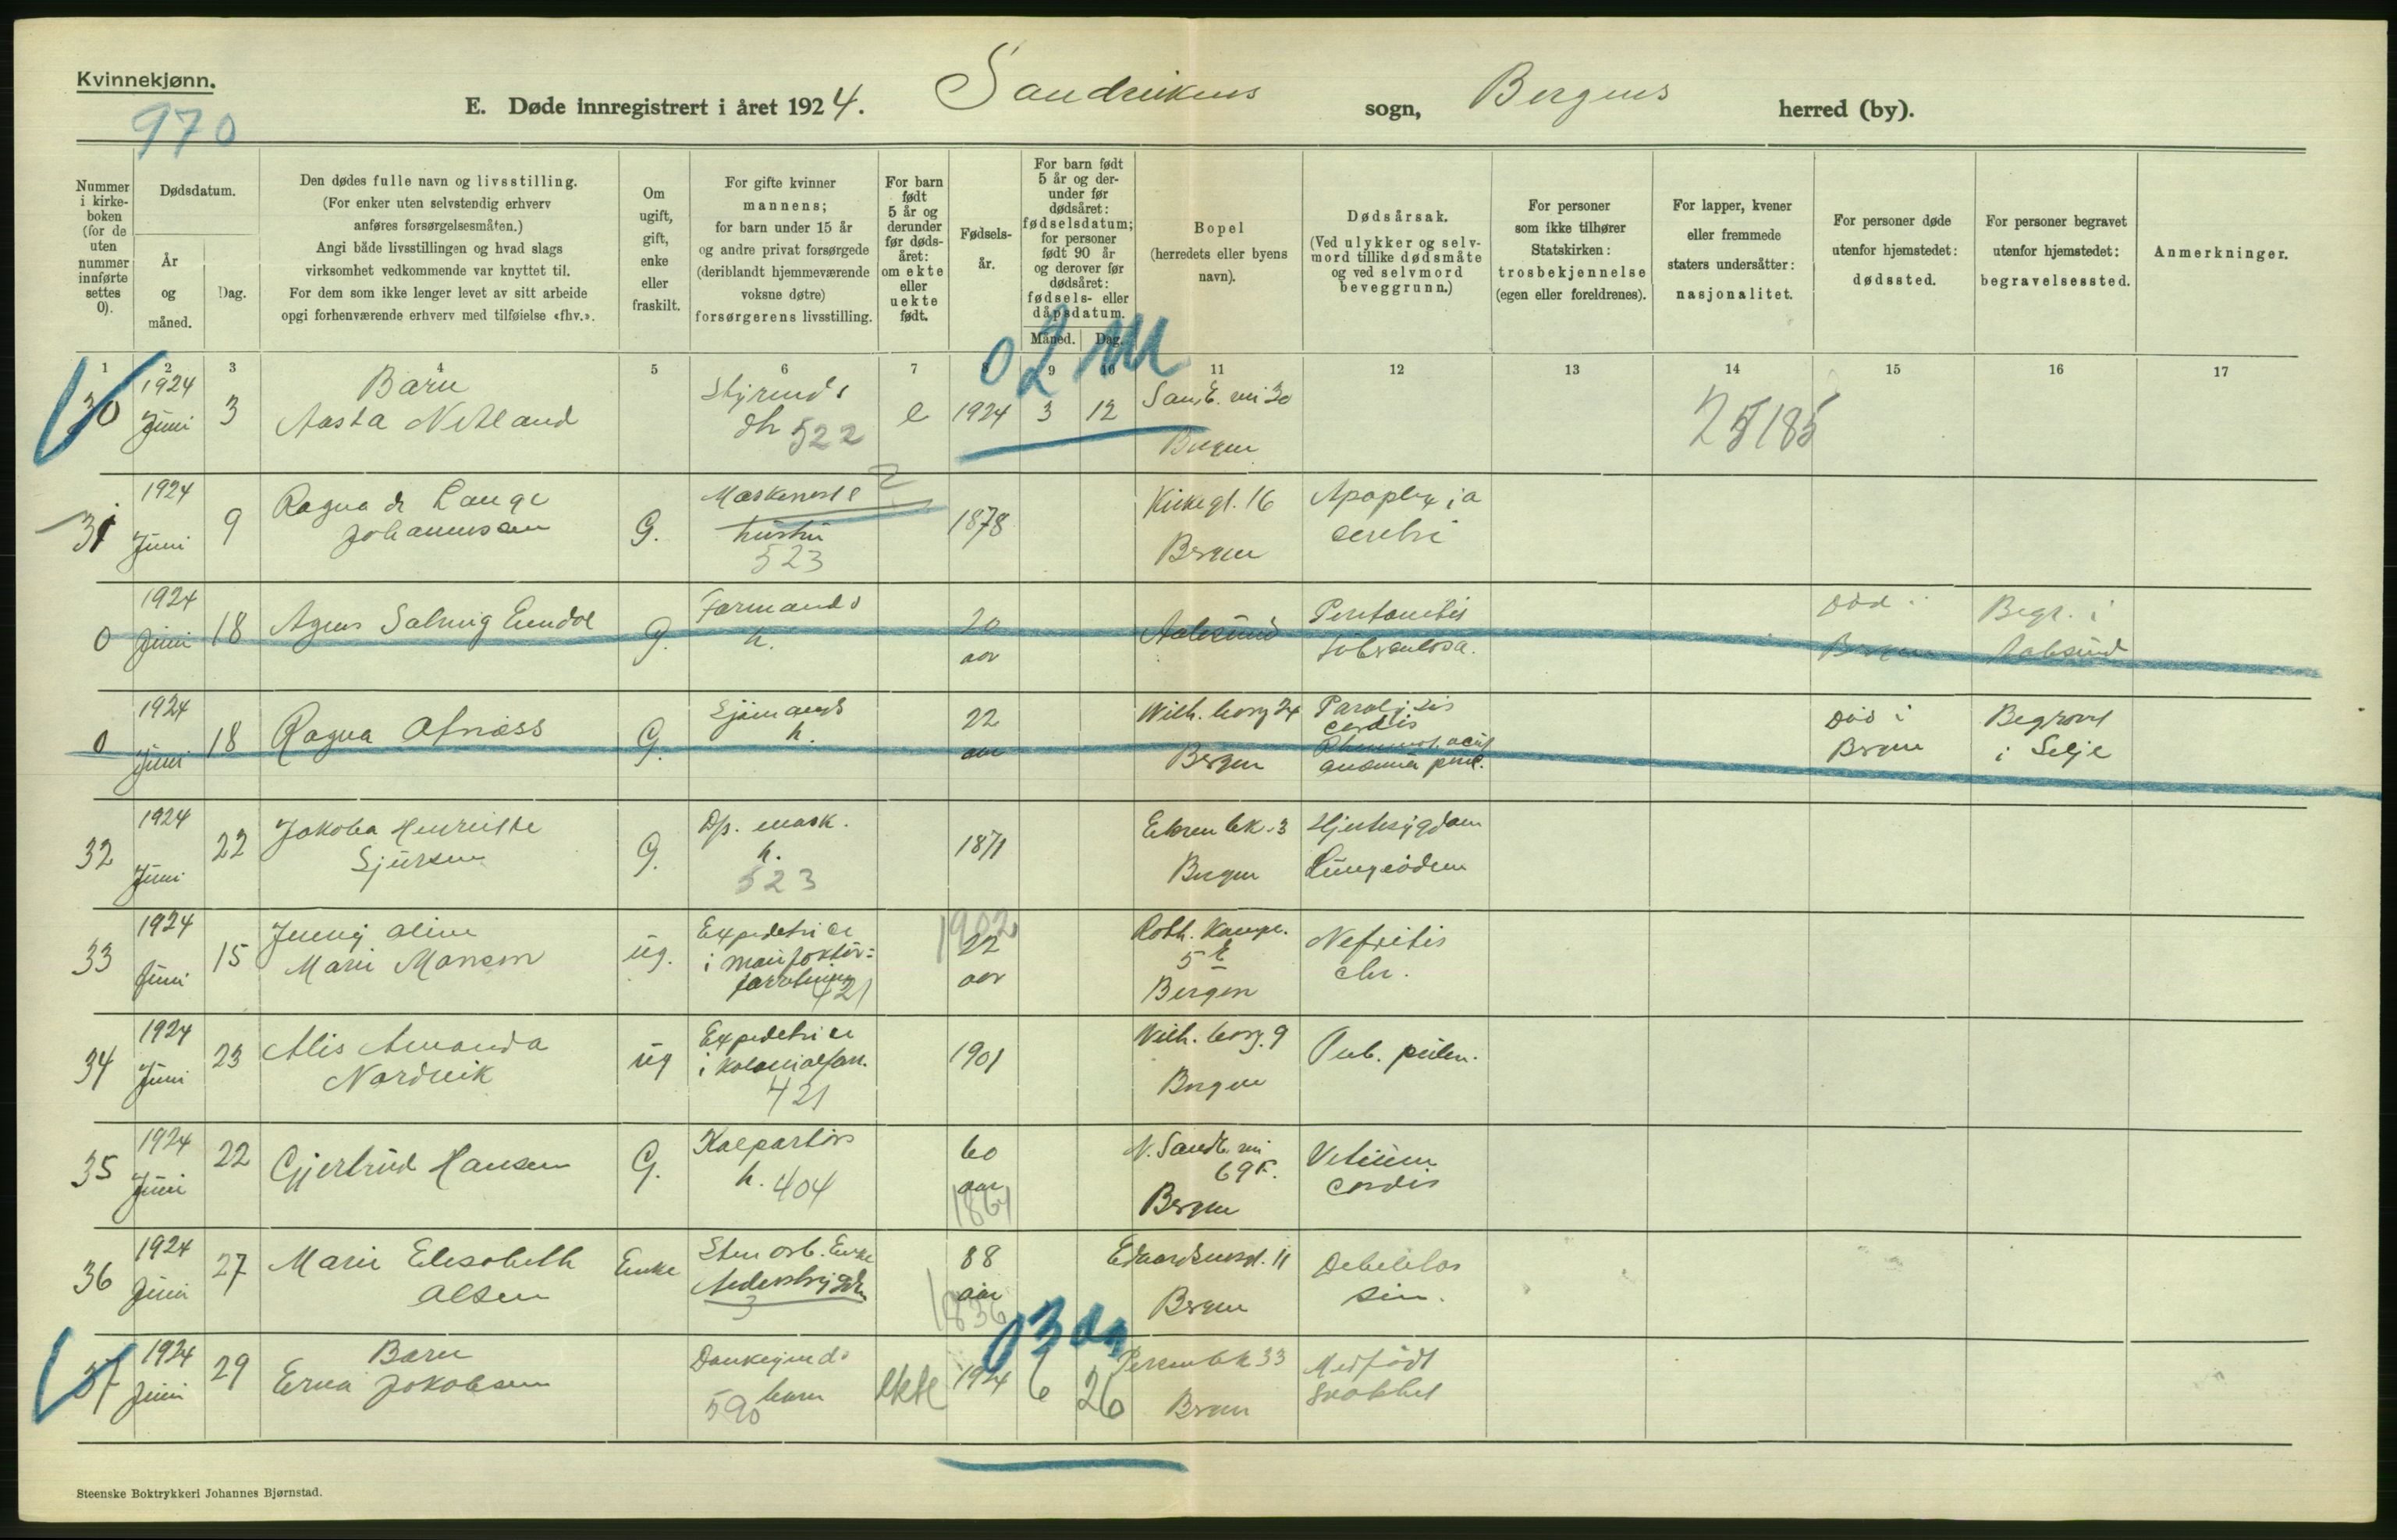 Kvinnekjønn.
970
E. Døde innregistrert i året 1924. Sandvikens sogn, Bergens herred (by).
Nummer i kirkeboken (for de uten nummer innførte settes 0).
Dødsdatum.
År og måned.
Dag.
Den dødes fulle navn og livsstilling.
(For enker uten selvstendig erhverv
anføres forsørgelsesmåten.)
Angi både livsstillingen og hvad slags
virksomhet vedkommende var knyttet til.
For dem som ikke lenger levet av sitt arbeide
opgi forhenværende erhverv med tilføielse «fhv.».
Om ugift, gift, enke eller fraskilt.
For gifte kvinner
mannens;
for barn under 15 år
og andre privat forsørgede
(deriblandt hjemmeværende
voksne døtre)
forsørgerens livsstilling.
For barn født 5 år og derunder før dødsåret: om ekte eller uekte født.
Fødselsår.
For barn født 5 år og derunder før dødsåret: fødselsdatum; for personer født 90 år og derover før dødsåret: fødsels- eller dåpsdatum.
Måned. Dag.
Bopel
(herredets eller byens
navn).
Dødsårsak.
(Ved ulykker og selvmord tillike dødsmåte og ved selvmord beveggrunn.)
For personer
som ikke tilhører
Statskirken:
trosbekjennelse
(egen eller foreldrenes).
For lapper, kvener
eller fremmede
staters undersåtter:
nasjonalitet.
For personer døde
utenfor hjemstedet:
dødssted.
For personer begravet
utenfor hjemstedet:
begravelsessted.
Anmerkninger.
1 2 3 4 5 6 7 8 9 10 11 12 13 14 15 16 17
02 m
30 1924 Juni 3 Barn
Aasta Netland
522 e 1924 3 12
Bergen
25185
31 1924 Juni 9 Ragna de Lange
Johannessen
G. hustru
523
1878
Kirkegt. 16
Bergen
Apoplexia
cerebri
0 1924 Juni 18 Agnes Solveig
G. Formands
h.
20
aar
Aalesund
Peritonitis
tuberculosa.
Død i
Bergen
Begr. i
Aalesund
0 1924 Juni 18 Ragna Osnæss
G. Sjømands
h.
22
aar
Wilh. borg 24
Bergen
Paralysis
cordis
Død i
Bergen
Begravet
i Selje
32 1924 Juni 22 Jakoba Henriette
Sjursen
G. Dp. mask.
h.
523
1871
Bergen
Hjertesygdom
Lungeødem
33 1924 Juni 15 Jenny Oline
Marie Monsen
ug. Expeditrice
i manufaktur-
forretning
421
1902
22
aar
Roth. Kaspe.
5 E
Bergen
Nefritis
chr.
34 1924 Juni 23 Alis Amanda
Nordvik
ug Expeditrice
i kolonialforr.
421
1901
Wilh. borg. 9
Bergen
Tub. pulm.
35 1924 Juni 22 Gjertrud Hansen
G.
h. 404
60
aar
1864
N. Sandb. vei
69 F.
Bergen
Vitium
cordis
36 1924 Juni 27 Marie Elisabeth
Olsen
Enke Sten arb. Enke
Alderstrygd
3
88
aar
1836
Edvardsensgt. 11
Bergen
Debilitas
sen.
03 da
37 1924 Juni 29 Barn
Erna Jakobsen
barn
590
ekte 1924 6 26
33
Bergen
Medfødt
svakhet
Steenske Boktrykkeri Johannes Bjørnstad.